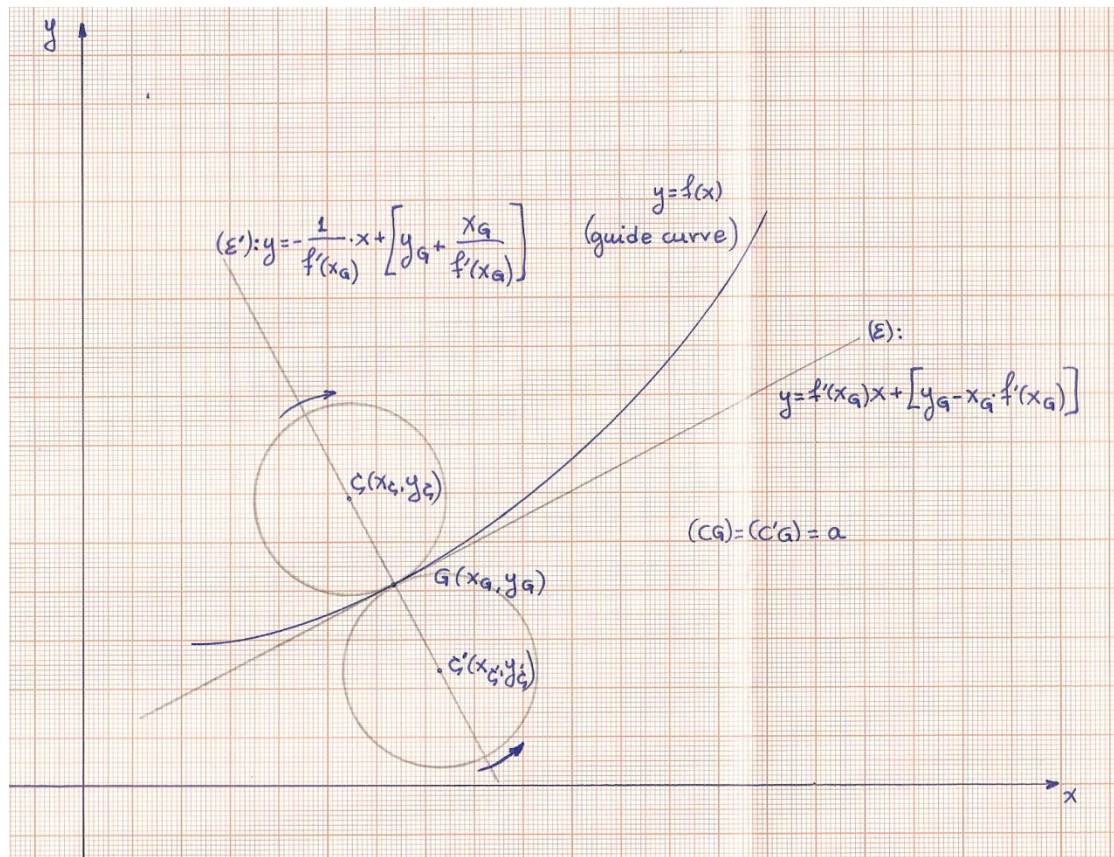 y
y=f(x)
(guide curve)
(ε'): y = -1/f'(x_G) · x + [y_G + x_G/f'(x_G)]
(ε):
y = f'(x_G)x + [y_G - x_G · f'(x_G)]
C(x_C, y_C)
(CG)=(C'G)=a
G(x_G, y_G)
C'(x_C', y_C')
x